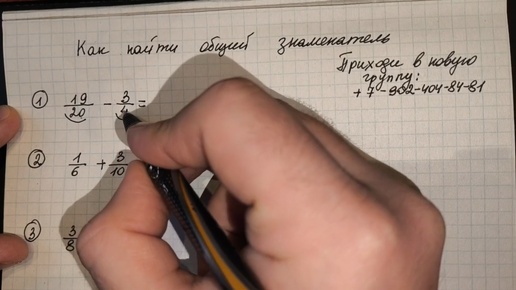 Как найти общий знаменатель
Приходи в новую
группу:
+7-902-404-84-81
1 19/20 - 3/4 =
2 1/6 + 3/10
3 3/8